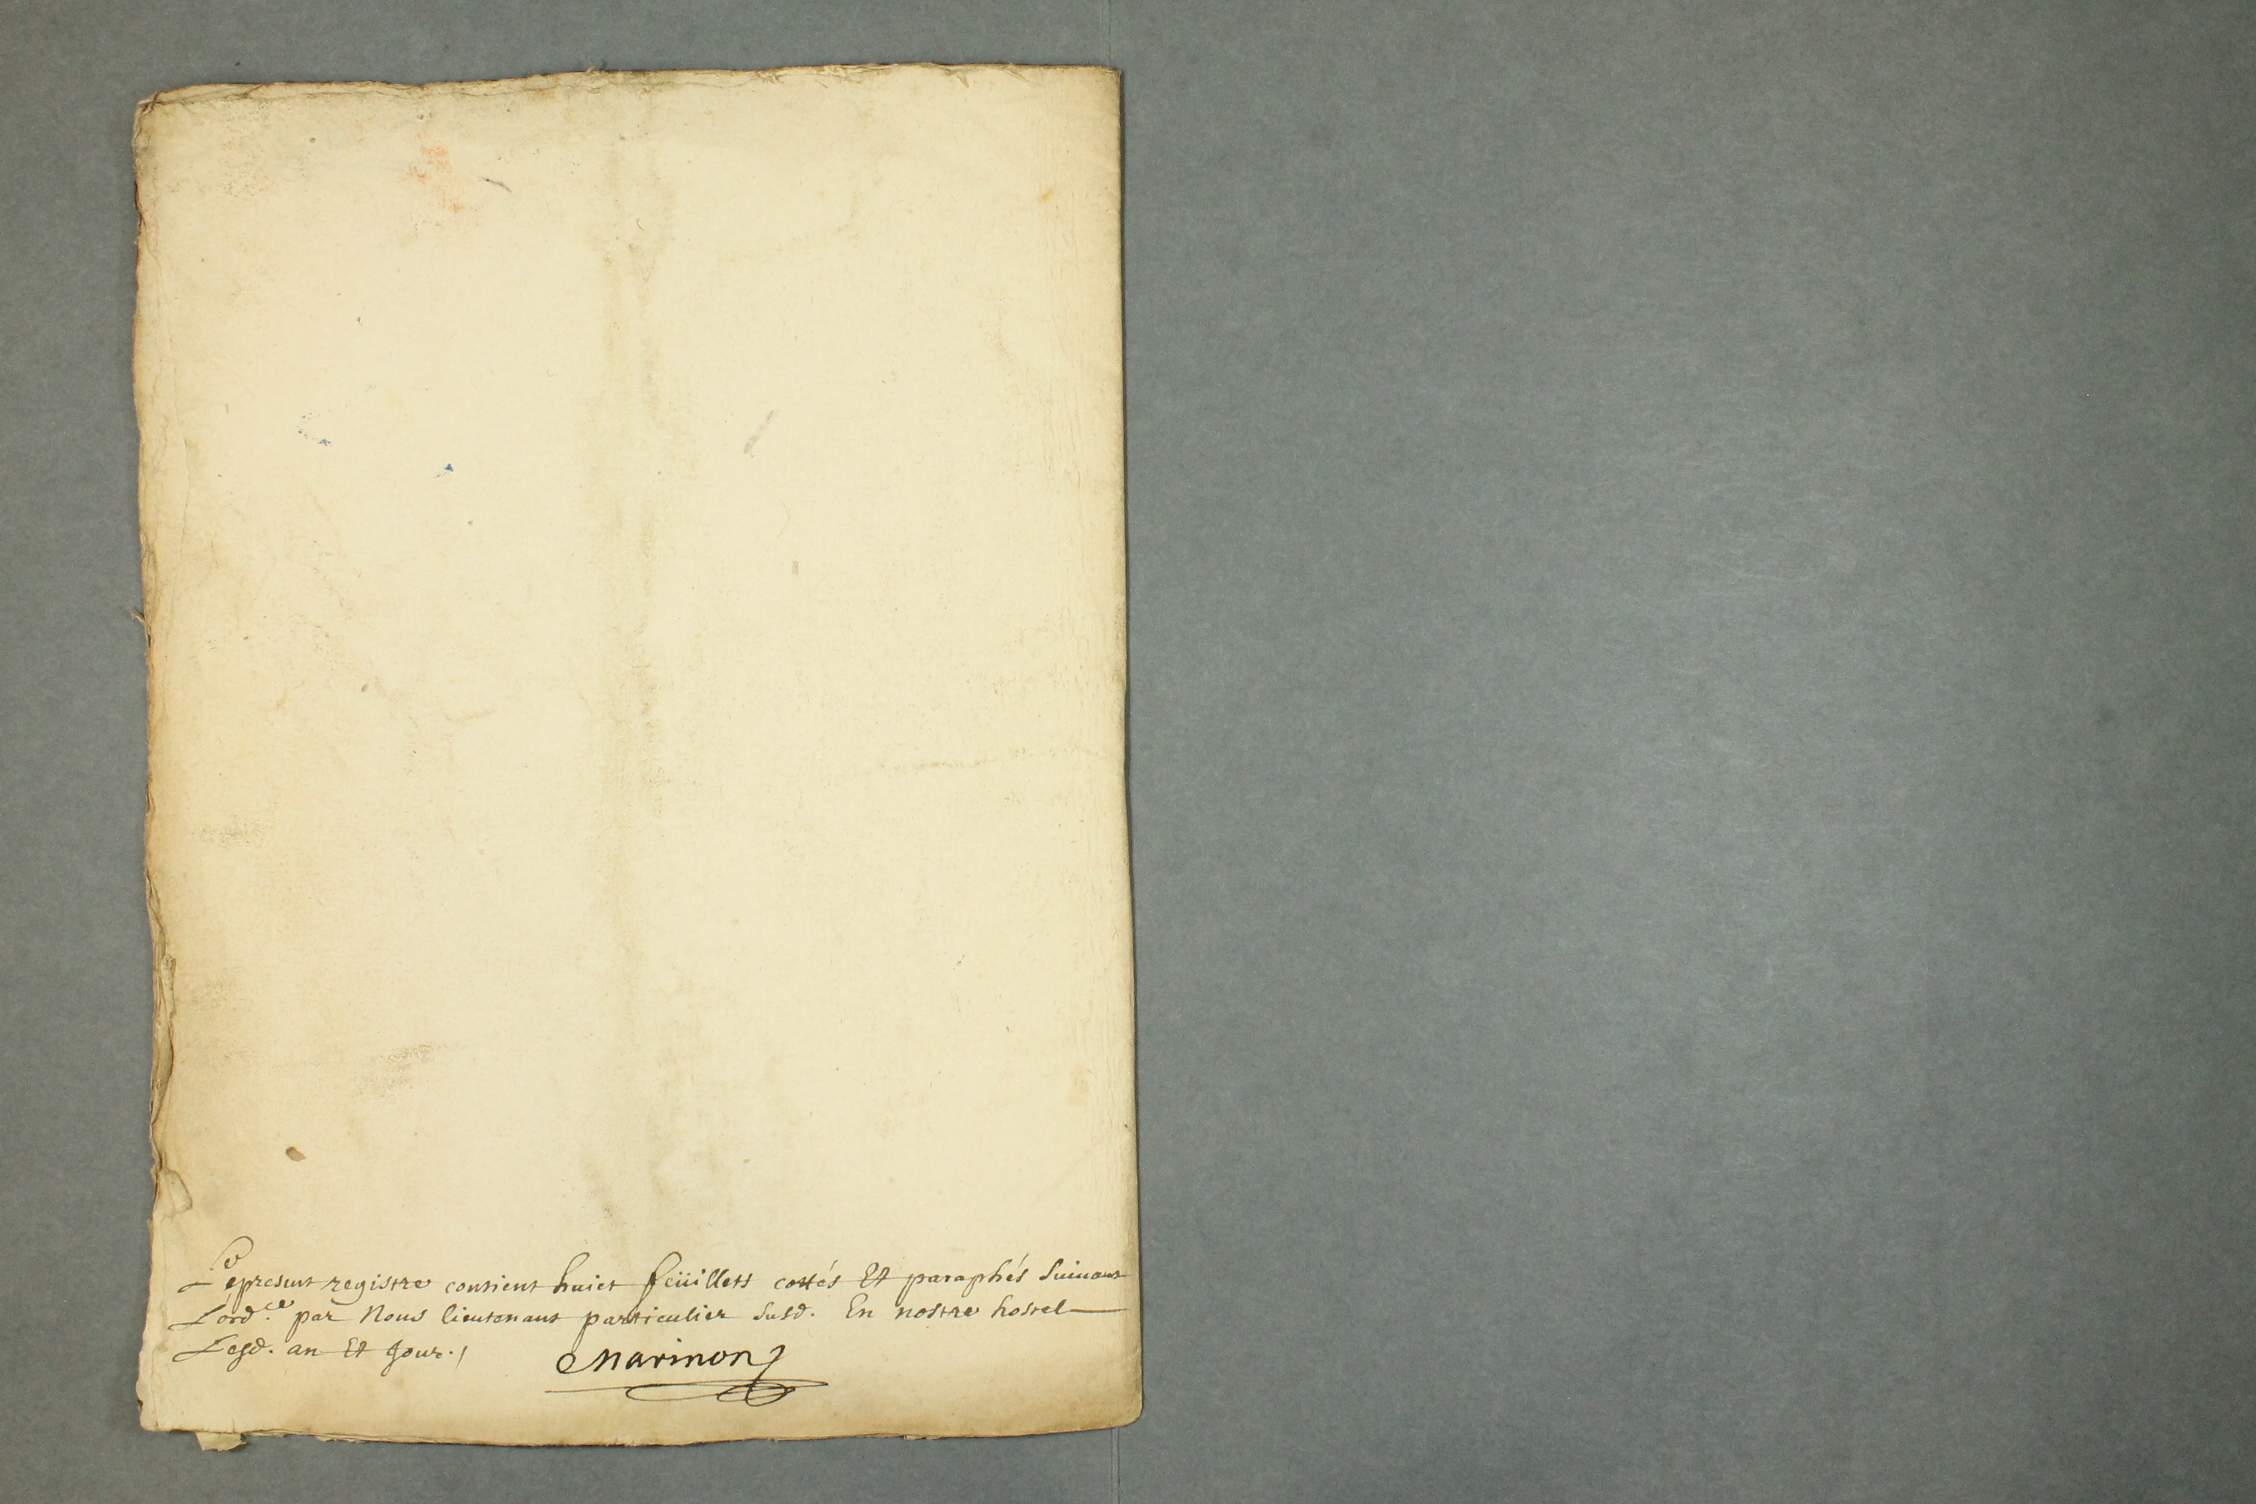 Le present registre contient huict feüillets cottés Et paraphés Suiuant
L'ord.ce par Nous lieutenant particulier susd. En nostre hostel
Lesd. an Et Jour./ Marinon